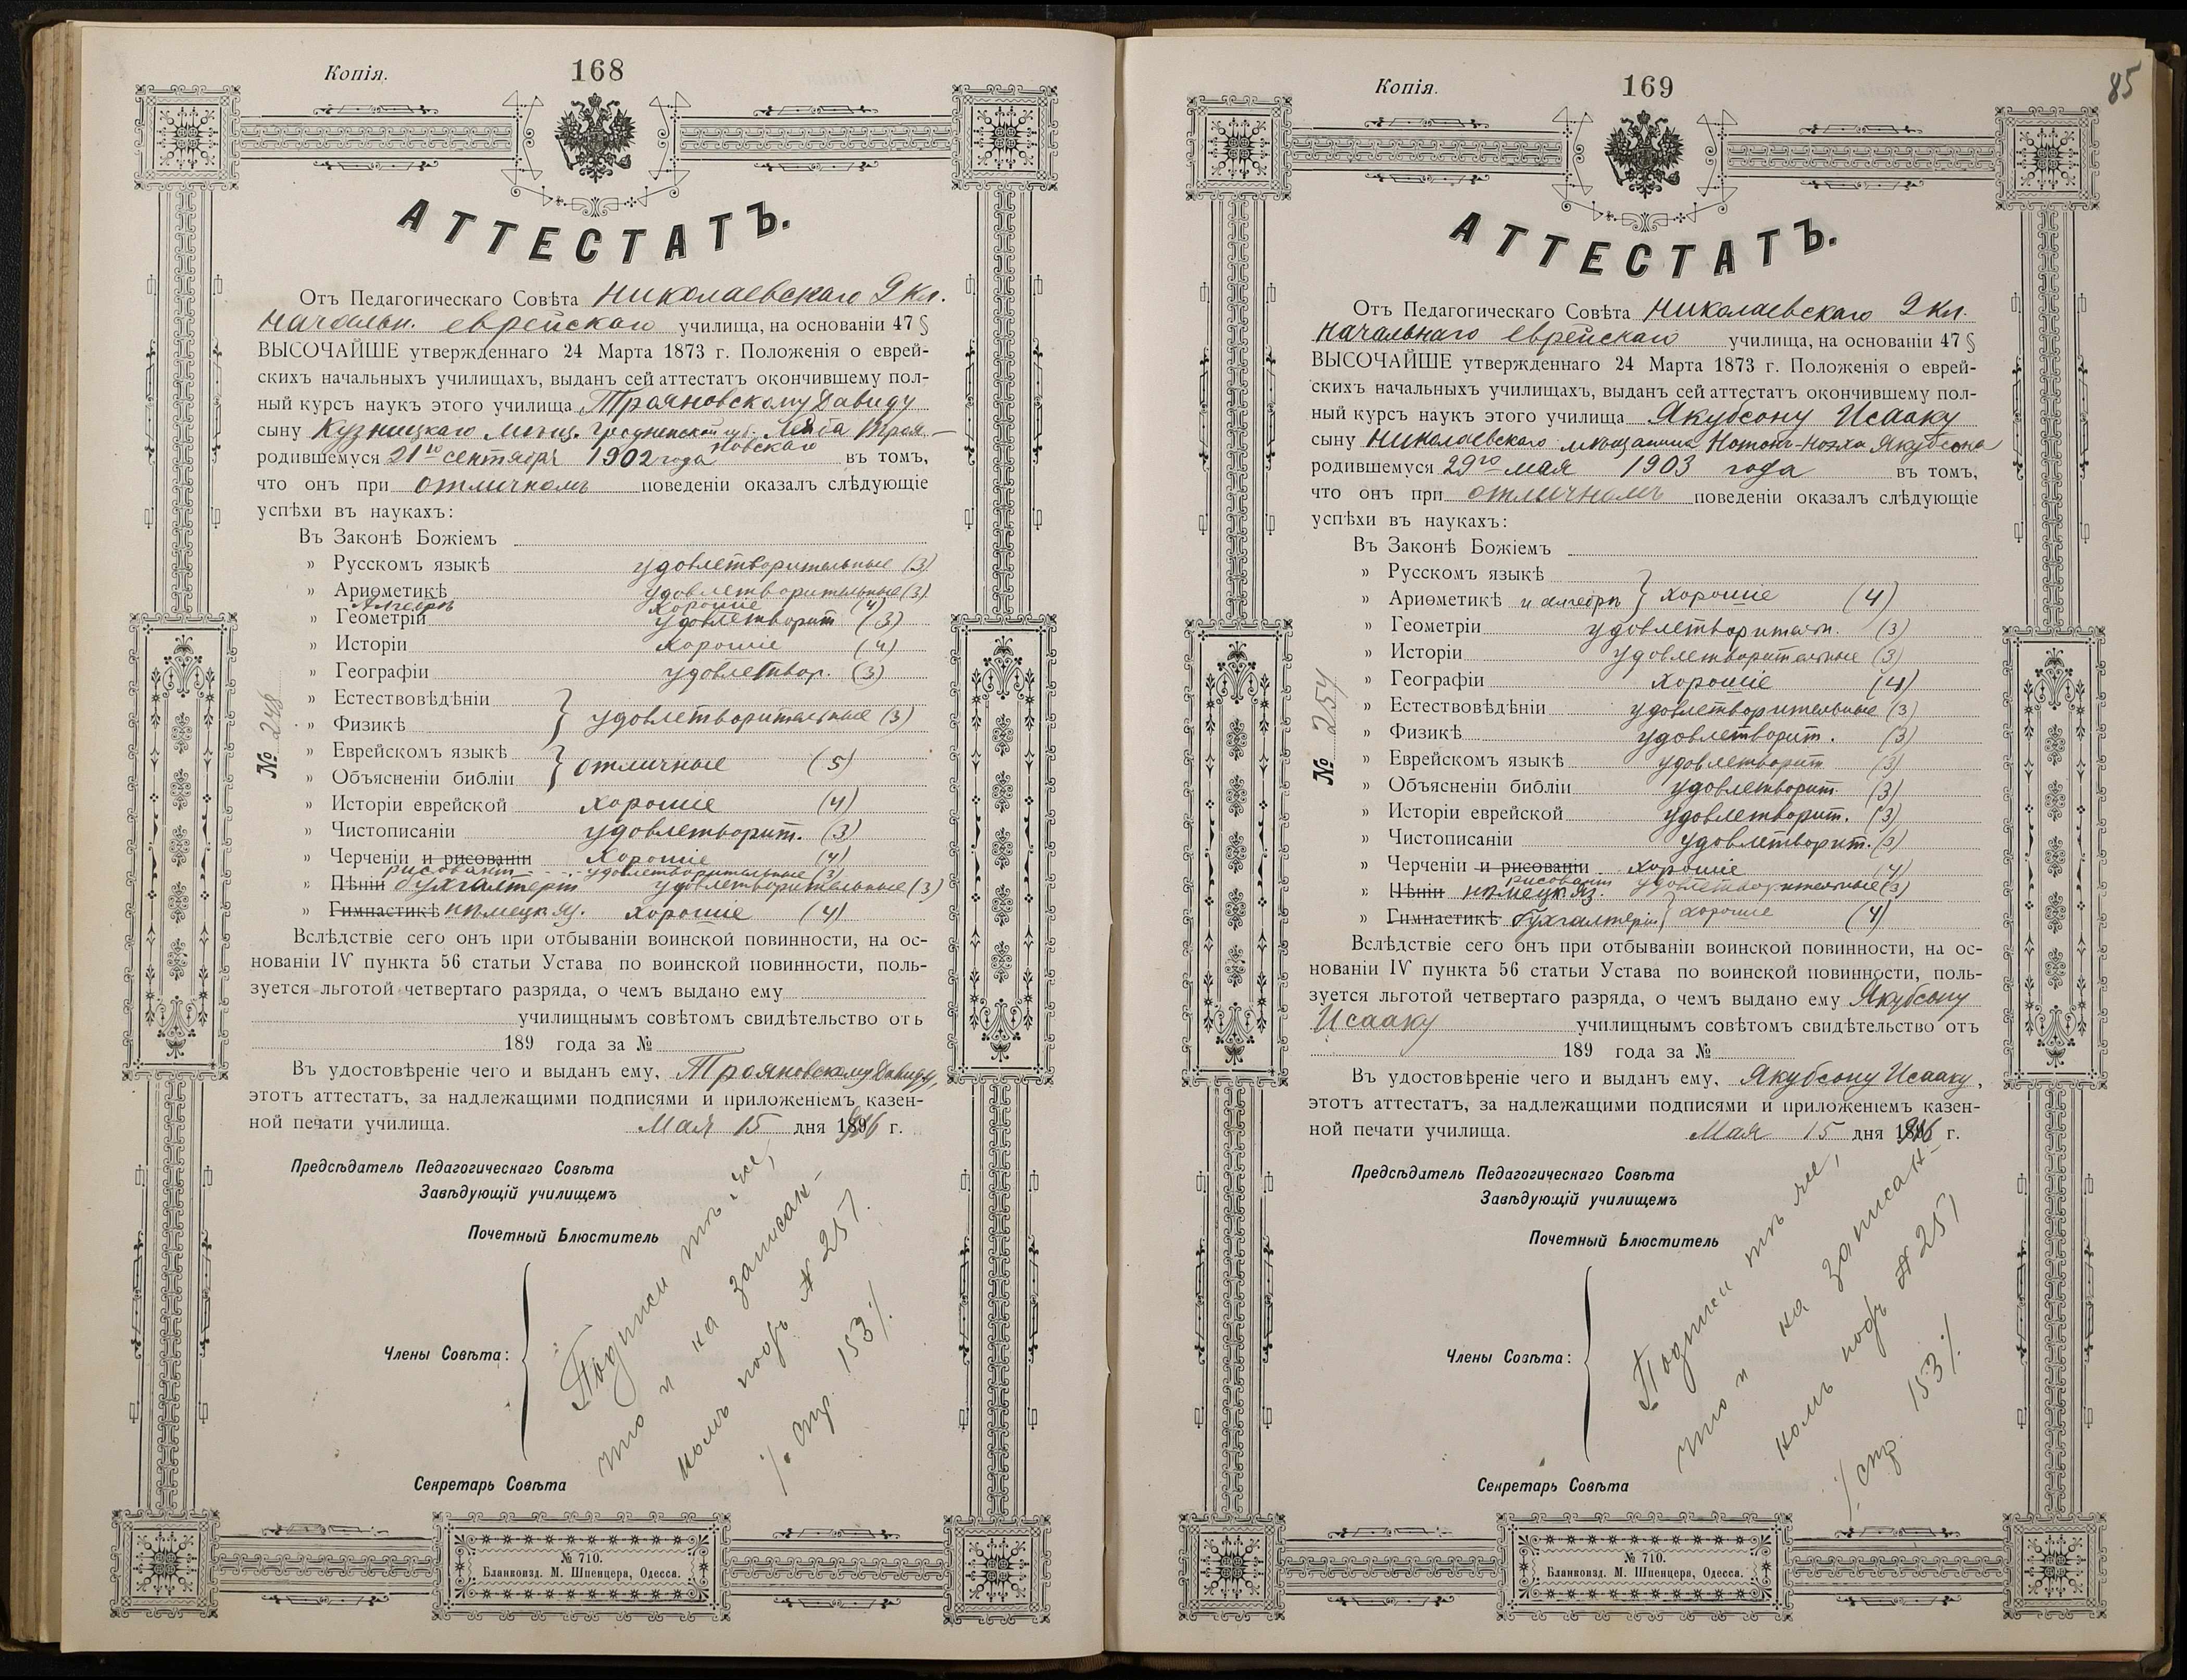 Копія.
168
АТТЕСТАТЪ.
Отъ Педагогическаго Совѣта Николаевскаго 2 кл.
начальн. еврейскаго училища, на основаніи 47 §
ВЫСОЧАЙШЕ утвержденнаго 24 Марта 1873 г. Положенія о еврей-
скихъ начальныхъ училищахъ, выданъ сей аттестатъ окончившему пол-
ный курсъ наукъ этого училища Трояновскому Давиду
сыну Кузницкаго мѣщ. Гродненской губ. Лейба Троя-
новскаго
родившемуся 21го сентября 1902 года въ томъ,
что онъ при отличномъ поведеніи оказалъ слѣдующіе
успѣхи въ наукахъ:
Въ Законѣ Божіемъ
» Русскомъ языкѣ удовлетворительные (3)
» Ариѳметикѣ удовлетворительные (3)
Алгебрѣ хорошіе (4)
» Геометріи удовлетворит (3)
» Исторіи хорошіе (4)
» Географіи удовлетвор. (3)
» Естествовѣдѣніи
» Физикѣ удовлетворительные (3)
» Еврейскомъ языкѣ
» Объясненіи библіи отличные (5)
» Исторіи еврейской хорошіе (4)
» Чистописаніи удовлетворит. (3)
» Черченіи и рисованіи хорошіе (4)
рисованіи удовлетворительные (3)
» Пѣніи бухгалтеріи удовлетворительные (3)
» Гимнастикѣ нѣмецк. яз. хорошіе (4)
№ 248
Вслѣдствіе сего онъ при отбываніи воинской повинности, на ос-
нованіи IV пункта 56 статьи Устава по воинской повинности, поль-
зуется льготой четвертаго разряда, о чемъ выдано ему
училищнымъ совѣтомъ свидѣтельство отъ
189 года за №
Въ удостовѣреніе чего и выданъ ему, Трояновскому Давиду,
этотъ аттестатъ, за надлежащими подписями и приложеніемъ казен-
ной печати училища. Мая 15 дня 1916 г.
Предсѣдатель Педагогическаго Совѣта
Завѣдующій училищемъ
Почетный Блюститель
Члены Совѣта:
Подписи тѣ же,
что и на записан-
номъ подъ № 251
/. стр. 153 /.
Секретарь Совѣта
№ 710.
Бланкоизд. М. Шпенцера, Одесса.
Копія.
169
85
АТТЕСТАТЪ.
Отъ Педагогическаго Совѣта Николаевскаго 2 кл.
начальнаго еврейскаго училища, на основаніи 47 §
ВЫСОЧАЙШЕ утвержденнаго 24 Марта 1873 г. Положенія о еврей-
скихъ начальныхъ училищахъ, выданъ сей аттестатъ окончившему пол-
ный курсъ наукъ этого училища Якубсону Исааку
сыну Николаевскаго мѣщанина Нотонъ-Ноэха Якубсона
родившемуся 29го мая 1903 года въ томъ,
что онъ при отличномъ поведеніи оказалъ слѣдующіе
успѣхи въ наукахъ:
Въ Законѣ Божіемъ
» Русскомъ языкѣ
» Ариѳметикѣ и алгебрѣ хорошіе (4)
» Геометріи удовлетворительн. (3)
» Исторіи удовлетворительные (3)
» Географіи хорошіе (4)
» Естествовѣдѣніи удовлетворительные (3)
» Физикѣ удовлетворит. (3)
» Еврейскомъ языкѣ удовлетворит (3)
» Объясненіи библіи удовлетворит. (3)
» Исторіи еврейской удовлетворит. (3)
» Чистописаніи удовлетворит. (3)
» Черченіи и рисованіи хорошіе (4)
рисованіи удовлетворительные (3)
» Пѣніи нѣмецк. яз.
» Гимнастикѣ бухгалтеріи хорошіе (4)
№ 254
Вслѣдствіе сего онъ при отбываніи воинской повинности, на ос-
нованіи IV пункта 56 статьи Устава по воинской повинности, поль-
зуется льготой четвертаго разряда, о чемъ выдано ему Якубсону
Исааку училищнымъ совѣтомъ свидѣтельство отъ
189 года за №
Въ удостовѣреніе чего и выданъ ему, Якубсону Исааку,
этотъ аттестатъ, за надлежащими подписями и приложеніемъ казен-
ной печати училища. Мая 15 дня 1916 г.
Предсѣдатель Педагогическаго Совѣта
Завѣдующій училищемъ
Почетный Блюститель
Члены Совѣта:
Подписи тѣ же,
что и на записан-
номъ подъ № 251
/. стр. 153 /.
Секретарь Совѣта
№ 710.
Бланкоизд. М. Шпенцера, Одесса.